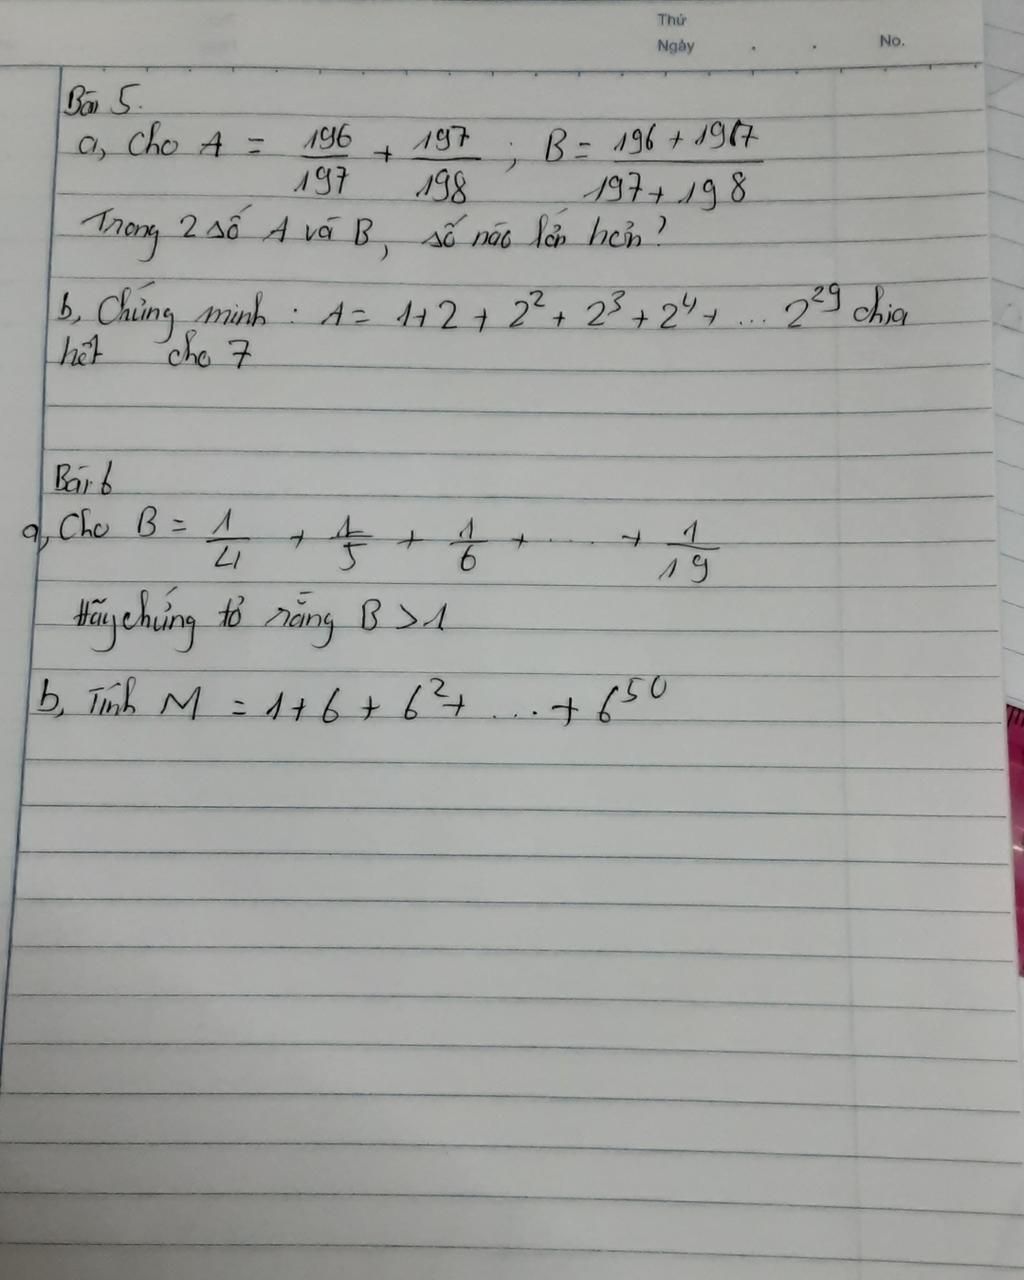 Thứ
Ngày . . No.
Bài 5.
a, Cho A = 196/197 + 197/198 ; B = (196 + 197)/(197 + 198)
Trong 2 số A và B, số nào lớn hơn?
b, Chứng minh : A = 1+2 + 2² + 2³ + 2⁴ + ... 2²⁹ chia
hết cho 7
Bài 6
a, Cho B = 1/4 + 1/5 + 1/6 + .... + 1/19
Hãy chứng tỏ rằng B > 1
b, Tính M = 1 + 6 + 6² + ... + 6⁵⁰